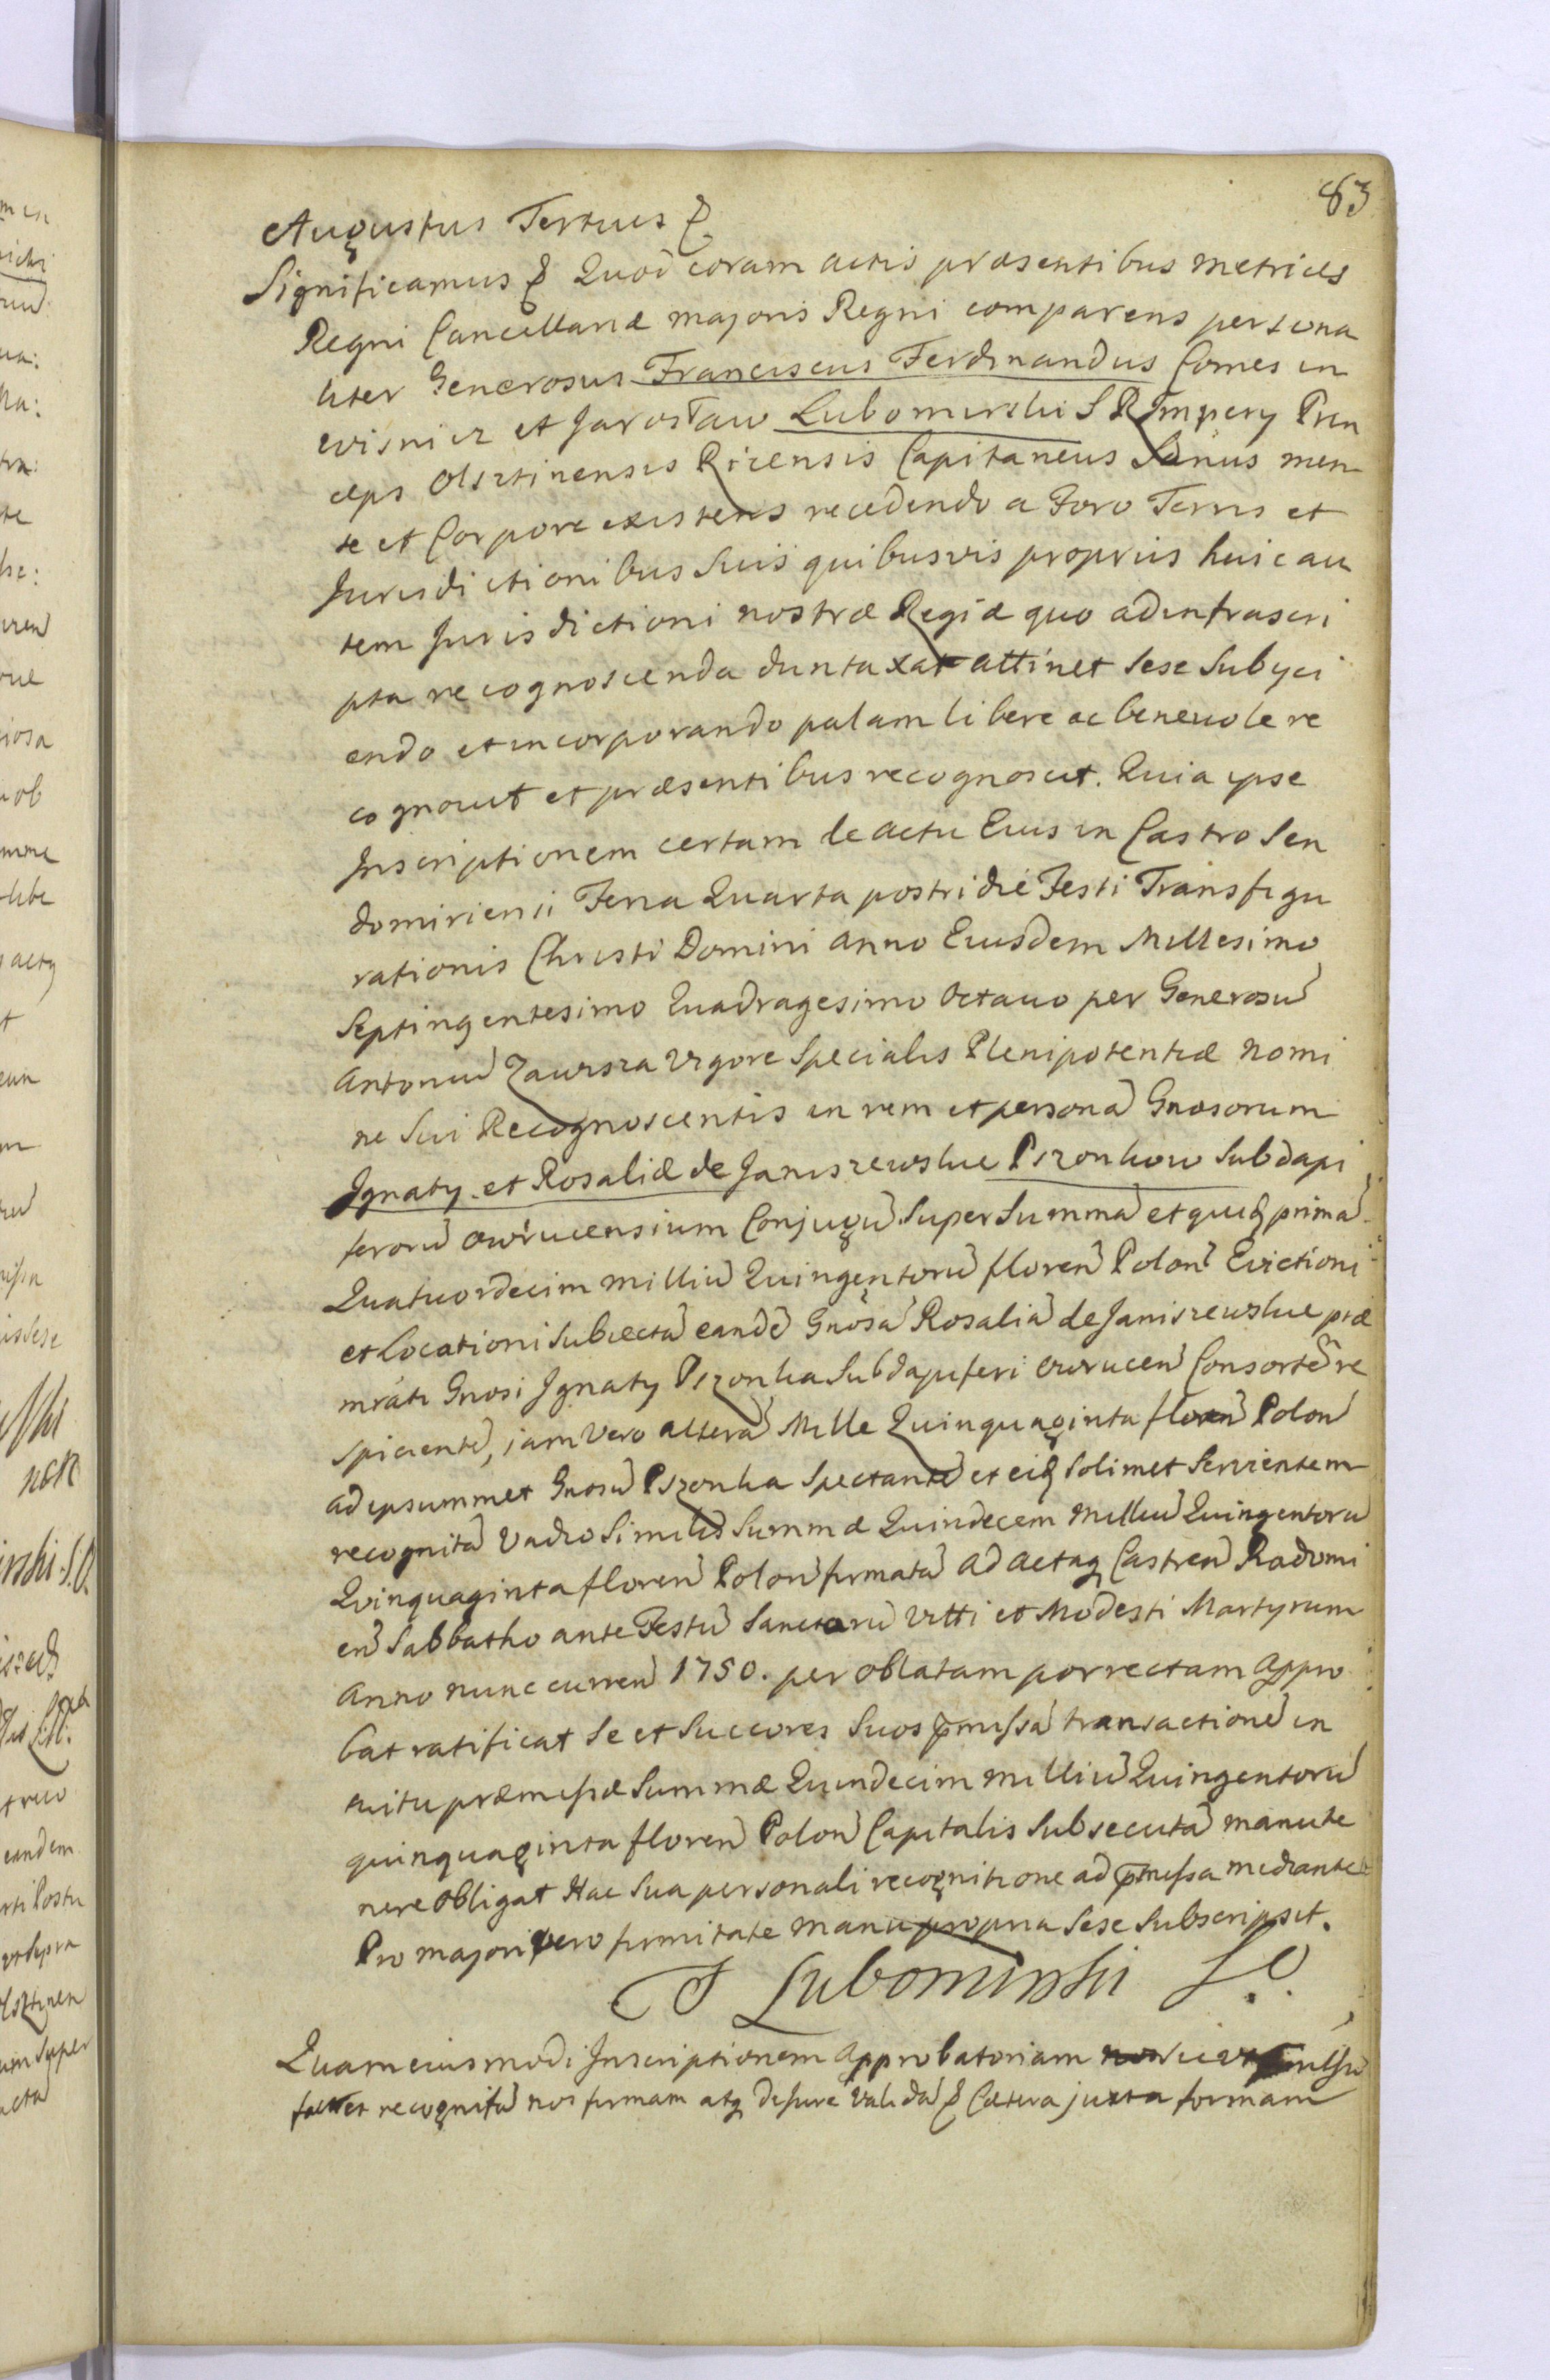 83
Augustus Tertius &
Significamus & Quod coram actis præsentibus Metrices
Regni Cancellariæ majoris Regni comparens persona
liter Generosus Franciscus Ferdinandus Comes in
Wisnicz et Jarosław Lubomirski S R Impery Prin
ceps Olsztinensis Ricensis Capitaneus Sanus men
te et Corpore existens recedendo a Foro Terris et
Jurisdictionibus Suis quibusvis proprijs huic au
tem Jurisdictioni nostræ Regiæ quo ad infrascri
pta recognoscenda duntaxat attinet sese Subyci
endo et incorporando palam libere ac benevole re
cognovit et præsentibus recognoscit. Quia ipse
Inscriptionem certam de actu Eius in Castro Sen
domiriensi Feria Quarta postridie Festi Transfigu
rationis Christi Domini Anno Eiusdem Millesimo
Septingentesimo Quadragesimo Octavo per Generosū
Antoniū Zawisza vigore Specialis Plenipotentiæ nomi
ne Sui Recognoscentis in rem et personā Gnosorum
Ignaty et Rosaliæ de Janiszewskie Pszonkow Subdapi
ferorū Owrucensium Conjugū Super Summā et quidē primā
Quatuordecim Milliū Quingentorū florenˉ Polonˉ Evictioni
et Locationi Subiectā eandē Gnosā Rosaliā de Janiszewskie præ
mrati Gnosi Ignaty Pszonka Subdapiferi Owrucenˉ Consortē re
spicientē, jam vero alterā Mille Quinquaginta florenˉ Polonˉ
ad ipsummet Gnosū Pszonka Spectantē et eidē Solimet Servientem
recognitā Vadio Similis Summæ Quindecem Milliū Quingentorū
Quinquaginta florenˉ Polonˉ firmatā ad actaq Castrenˉ Radomi
enˉ Sabbatho ante Festū Sanctorū Vitti et Modesti Martyrum
Anno nunc currenˉ 1750. per oblatam porrectam Appro
bat ratificat Se et Succores Suos pmissā transactionē in
tuitu præmissæ Summæ Quindecim Milliū Quingentorū
quinquaginta florenˉ Polonˉ Capitalis Subsecutā manute
nere obligat Hac Sua personali recognitione ad pmissa mediante
Pro majori vero firmitate manu propria Sese Subscripsit.
F Lubomirski S.O.
Quam eiusmodi Inscriptionem Approbatoriam
recognitā nos firmam atq de jure validā & Cætera juxta formam